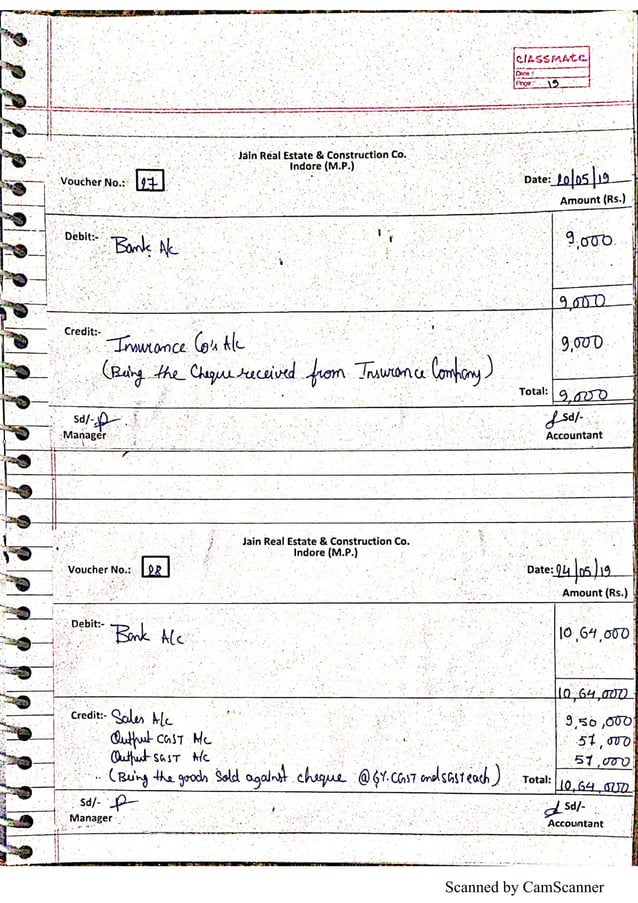 CLASSMATE
Date :
Page : 19
Jain Real Estate & Construction Co.
Indore (M.P.)
Voucher No.: 27
Date: 20/05/19
Amount (Rs.)
Debit:- Bank A/c 9,000
9,000
Credit:- Insurance Co's A/c 9,000
(Being the Cheque received from Insurance Company)
Total: 9,000
Sd/- Sd/-
Manager Accountant
Jain Real Estate & Construction Co.
Indore (M.P.)
Voucher No.: 28
Date: 24/05/19
Amount (Rs.)
Debit:- Bank A/c 10,64,000
10,64,000
Credit:- Sales A/c 9,50,000
Output CGST A/c 57,000
Output SGST A/c 57,000
(Being the goods Sold against cheque @6%. CGST and SGST each) Total: 10,64,000
Sd/- Sd/-
Manager Accountant
Scanned by CamScanner